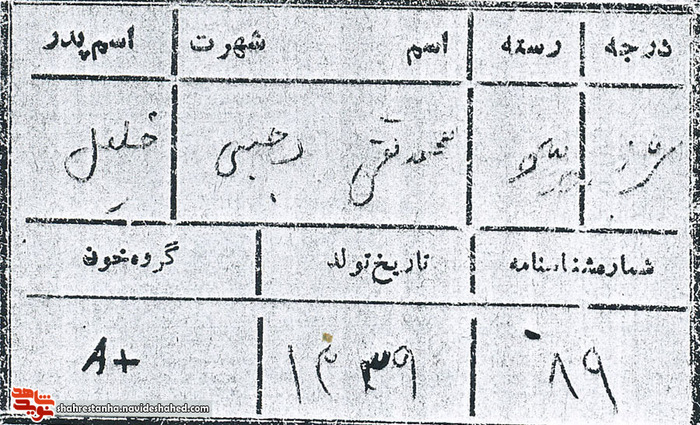 درجه رسته اسم شهرت اسم پدر
سرباز محمدتقی رجبی خلیل
شماره شناسنامه تاریخ تولد گروه خون
۸۹ ۱۳۳۹ A+
نوید شاهد shahrestanha.navideshahed.com